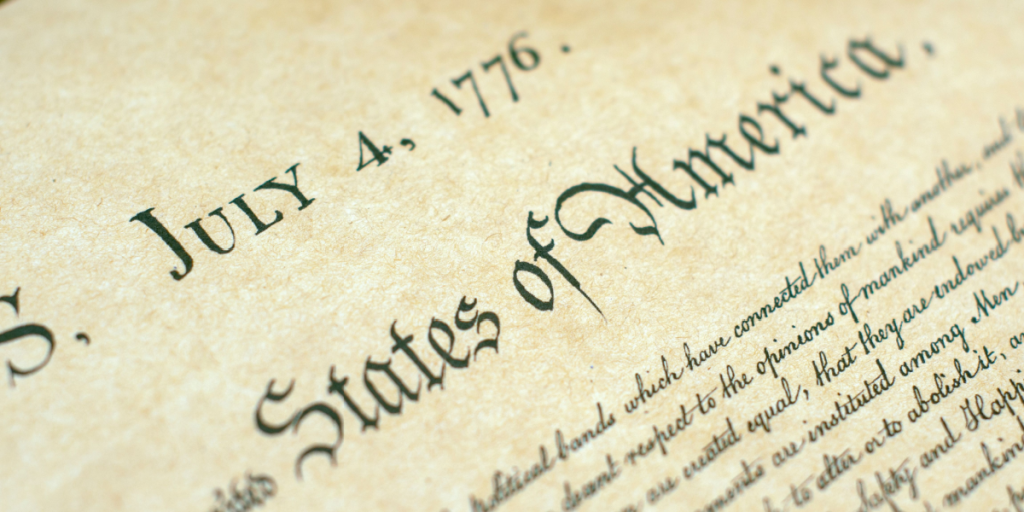 S, JULY 4, 1776.
States of America,
political bands which have connected them with another, and
decent respect to the opinions of mankind requires
are created equal, that they are endowed by
are instituted among Men
to alter or to abolish it, a
and Happi
mankind